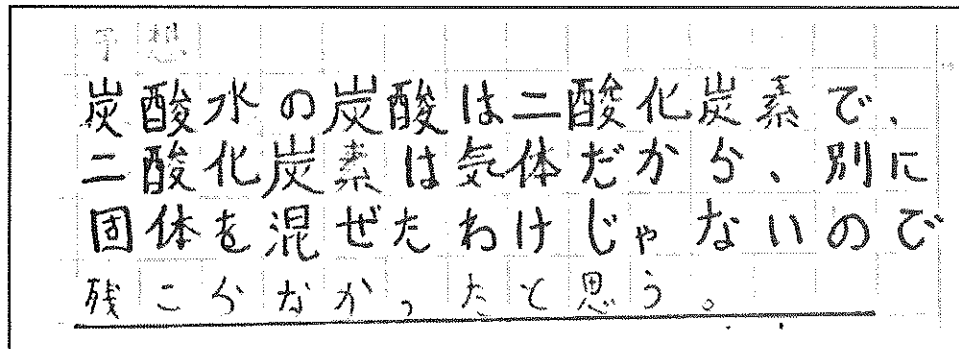 予想
炭酸水の炭酸は二酸化炭素で、
二酸化炭素は気体だから、別に
固体を混ぜたわけじゃないので
残こらなかったと思う。